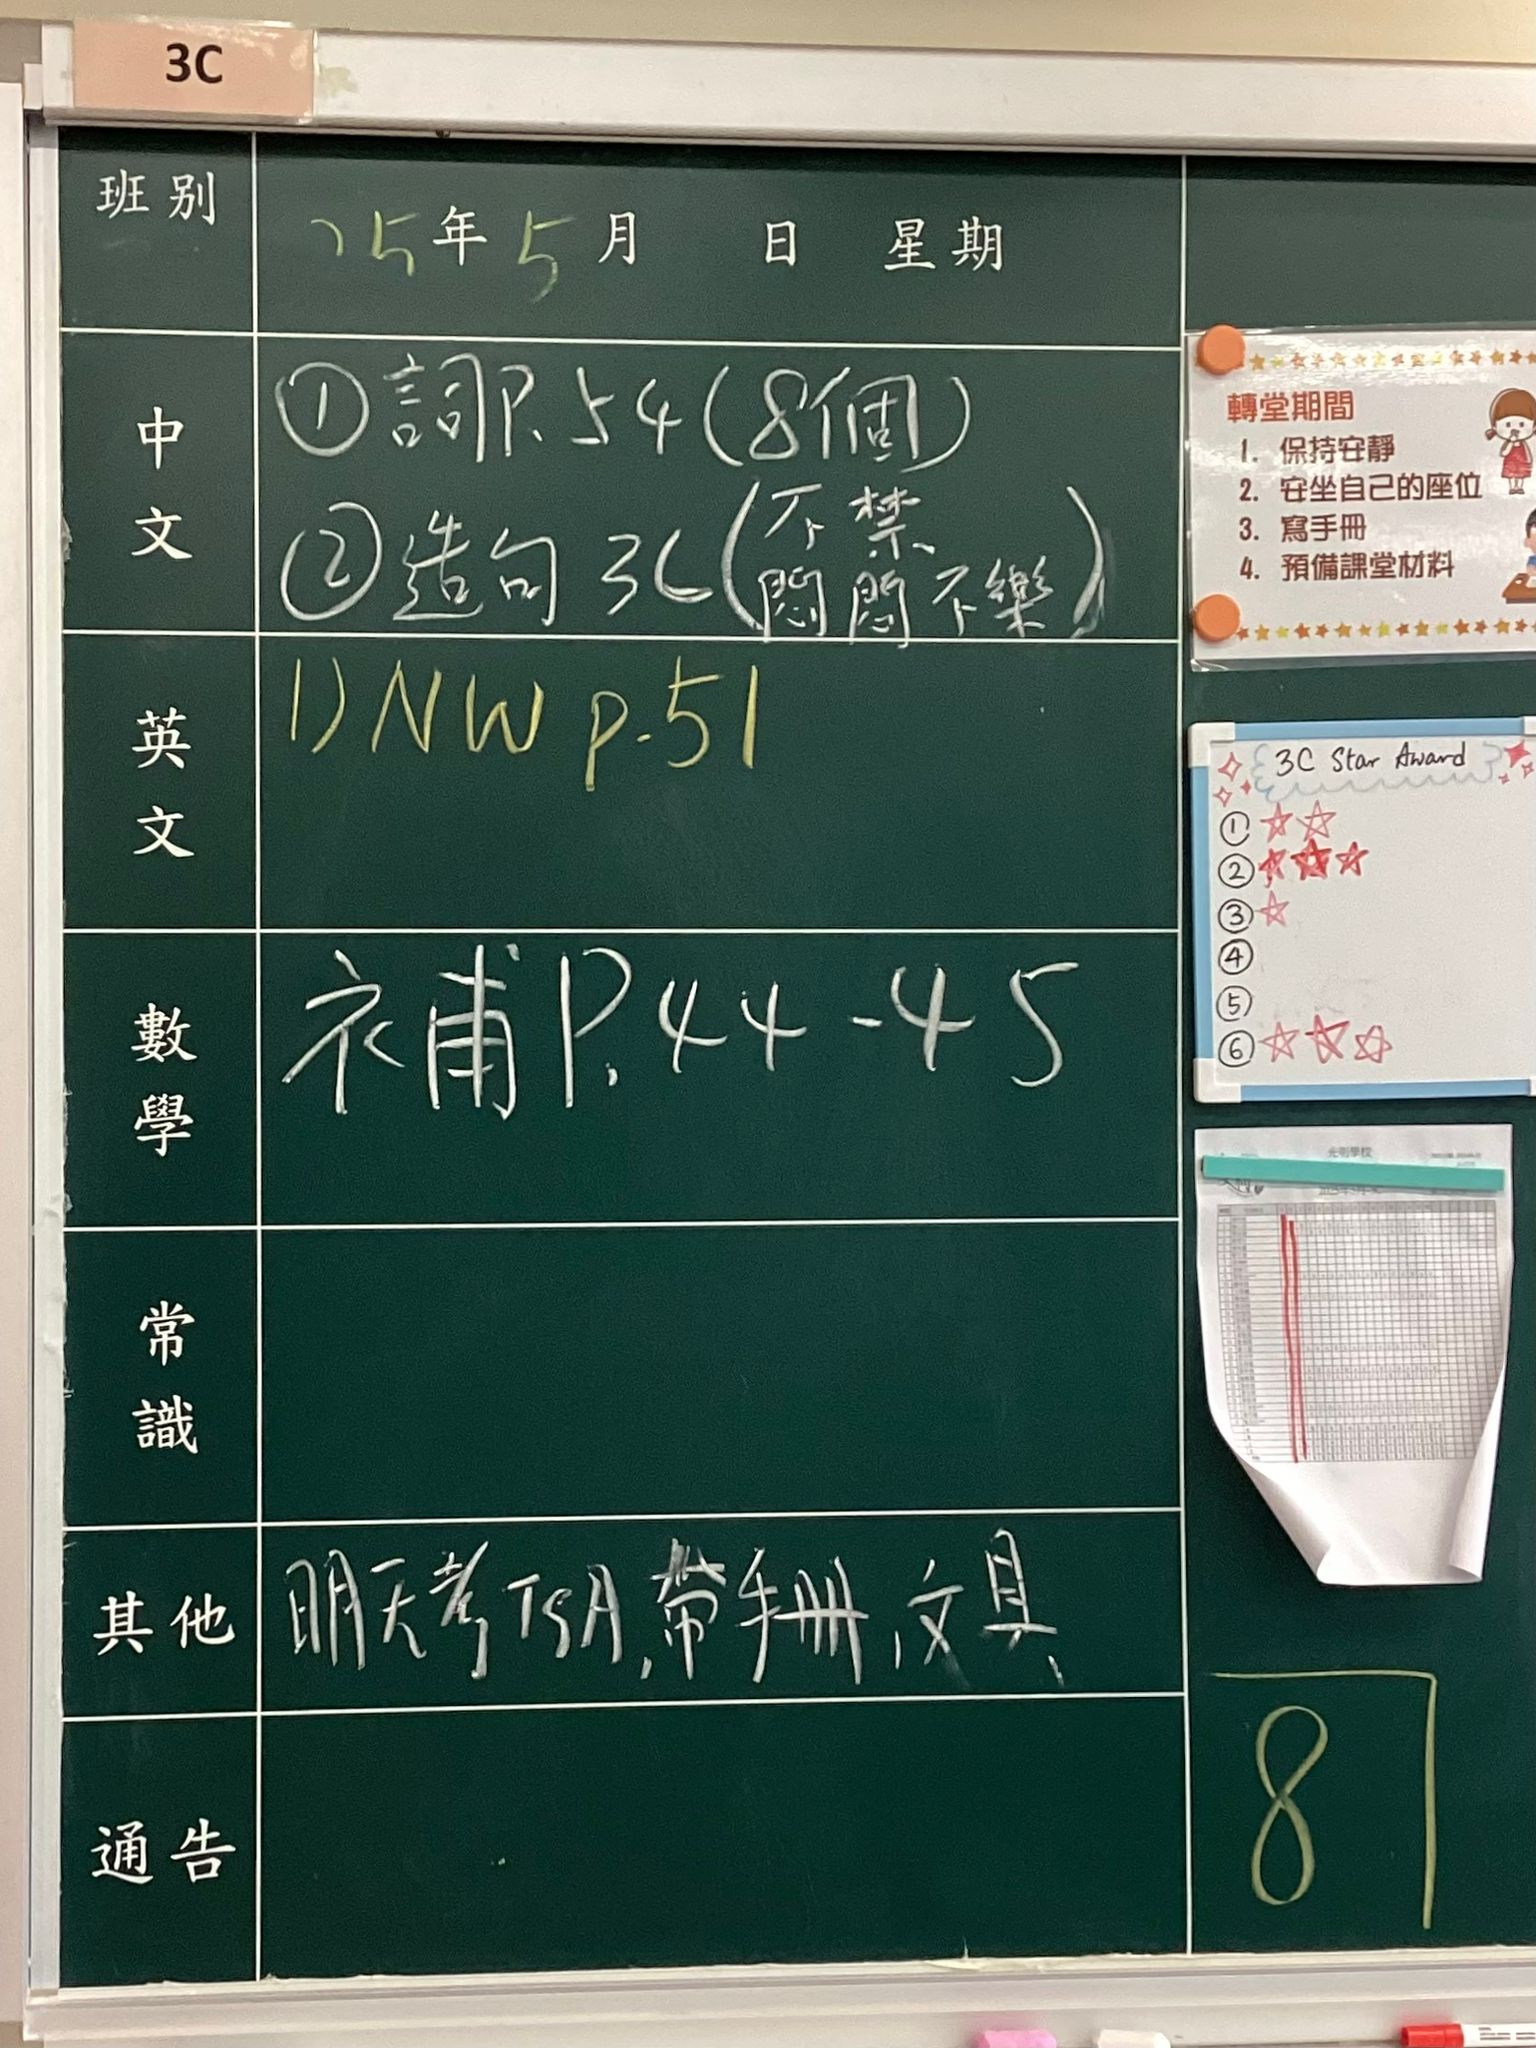 3C
班別
25年5月 日 星期
中文
① 詞P.54(8個)
② 造句3C(不禁
悶悶不樂)
英文
1) NW p.51
數學
衣補P.44-45
常識
其他
明天考TSA,帶手冊,文具
通告
轉堂期間
1. 保持安靜
2. 安坐自己的座位
3. 寫手冊
4. 預備課堂材料
3C Star Award
①
②
③
④
⑤
⑥
光明學校
8